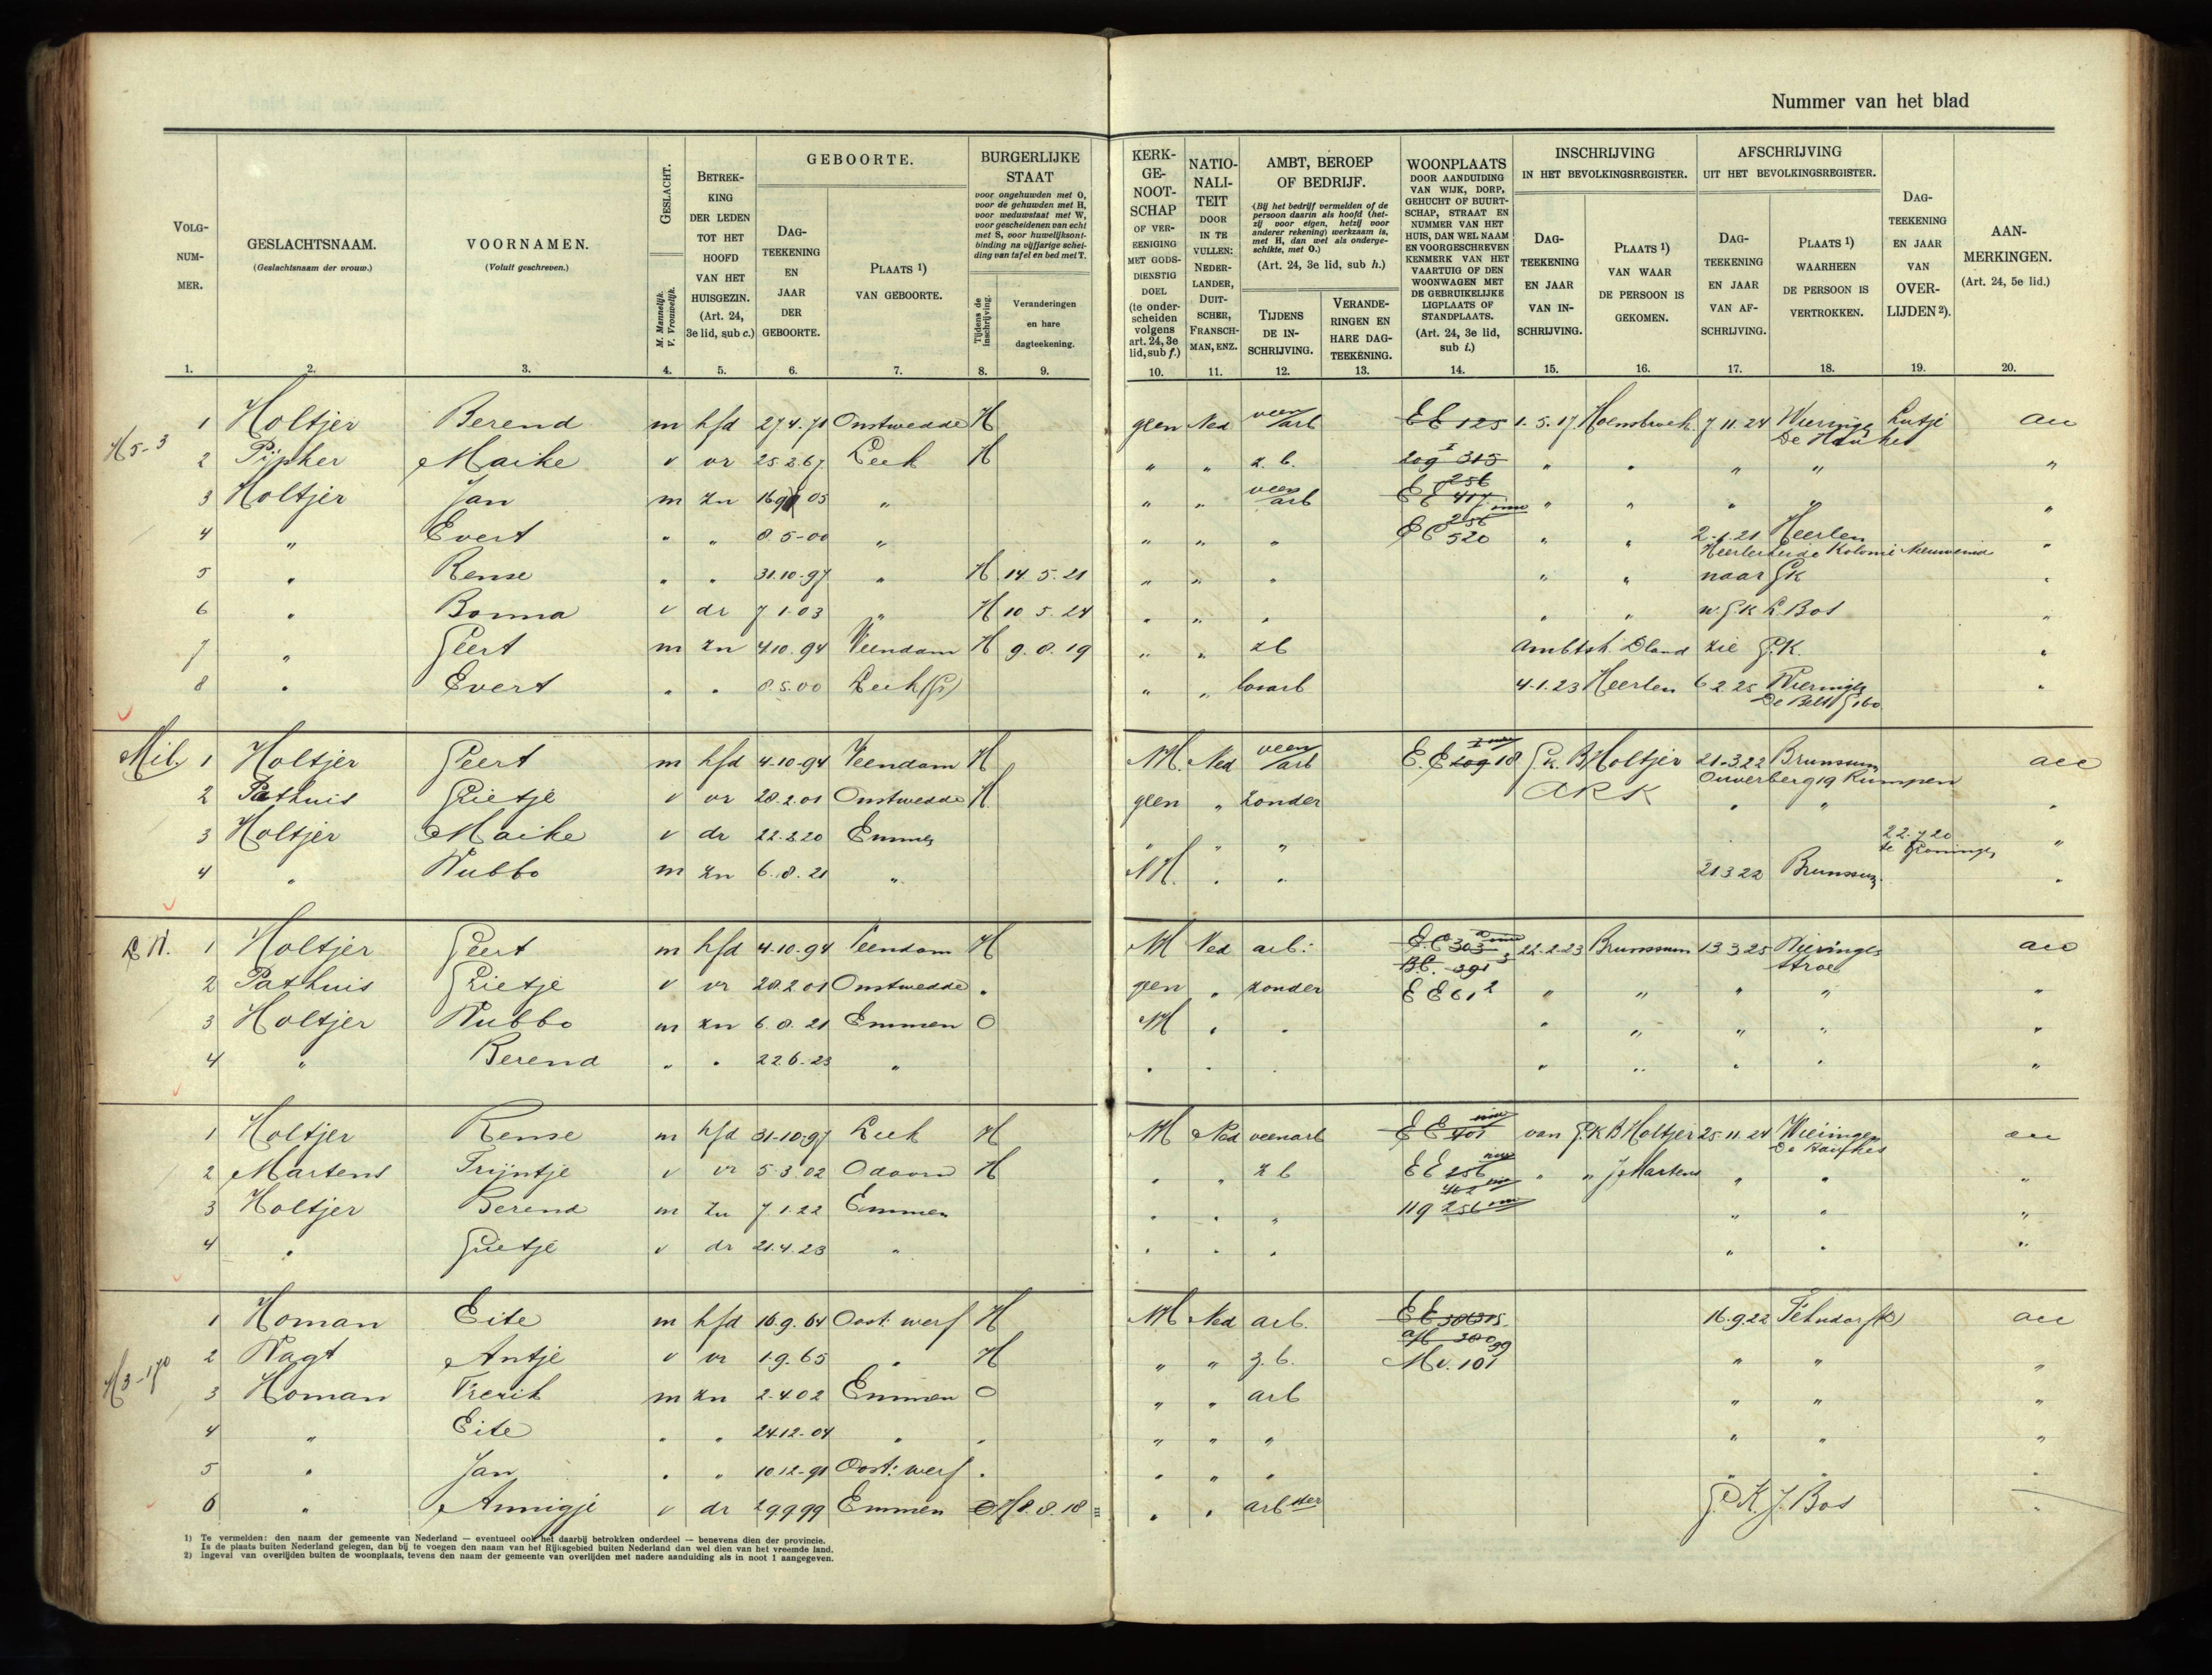 Nummer van het blad
VOLG-NUM-MER.
GESLACHTSNAAM.
(Geslachtsnaam der vrouw.)
VOORNAMEN.
(Voluit geschreven.)
GESLACHT.
M. Mannelijk. V. Vrouwelijk.
BETREK-KING DER LEDEN TOT HET HOOFD VAN HET HUISGEZIN. (Art. 24, 3e lid, sub c.)
GEBOORTE.
DAG-TEEKENING EN JAAR DER GEBOORTE.
PLAATS 1) VAN GEBOORTE.
BURGERLIJKE STAAT
voor ongehuwden met O, voor de gehuwden met H, voor weduwstaat met W, voor gescheidenen van echt met S, voor huwelijksont-binding na vijfjarige schei-ding van tafel en bed met T.
Tijdens de inschrijving.
Veranderingen en hare dagteekening.
KERK-GE-NOOT-SCHAP OF VER-EENIGING MET GODS-DIENSTIG DOEL (te onder-scheiden volgens art. 24, 3e lid, sub f.)
NATIO-NALI-TEIT DOOR IN TE VULLEN: NEDER-LANDER, DUIT-SCHER, FRANSCH-MAN, ENZ.
AMBT, BEROEP OF BEDRIJF.
(Bij het bedrijf vermelden of de persoon daarin als hoofd (het-zij voor eigen, hetzij voor anderer rekening) werkzaam is, met H, dan wel als onderge-schikte, met O.)
(Art. 24, 3e lid, sub h.)
TIJDENS DE IN-SCHRIJVING.
VERANDE-RINGEN EN HARE DAG-TEEKENING.
WOONPLAATS DOOR AANDUIDING VAN WIJK, DORP, GEHUCHT OF BUURT-SCHAP, STRAAT EN NUMMER VAN HET HUIS, DAN WEL NAAM EN VOORGESCHREVEN KENMERK VAN HET VAARTUIG OF DEN WOONWAGEN MET DE GEBRUIKELIJKE LIGPLAATS OF STANDPLAATS. (Art. 24, 3e lid, sub i.)
INSCHRIJVING IN HET BEVOLKINGSREGISTER.
DAG-TEEKENING EN JAAR VAN IN-SCHRIJVING.
PLAATS 1) VAN WAAR DE PERSOON IS GEKOMEN.
AFSCHRIJVING UIT HET BEVOLKINGSREGISTER.
DAG-TEEKENING EN JAAR VAN AF-SCHRIJVING.
PLAATS 1) WAARHEEN DE PERSOON IS VERTROKKEN.
DAG-TEEKENING EN JAAR VAN OVER-LIJDEN 2).
AAN-MERKINGEN. (Art. 24, 5e lid.)
1. 2. 3. 4. 5. 6. 7. 8. 9. 10. 11. 12. 13. 14. 15. 16. 17. 18. 19. 20.
H5-3
1 Holtjer Berend m hfd 27 4. 71 Onstwedde H geen Ned veen/arb EE 125 1. 5. 17 7 11. 24 Wieringen
De Haukes
2 Pijpker Maike v vr 25 2. 67 Leek H " " z. b. 315 " " " " "
3 Holtjer Jan m zn 05 " " " veen/arb " " " " "
4 " Evert " " 8. 5-00 " " " " 520 " " 2-1.21 Heerlen "
5 " Rense " " 31.10-97 " H 14. 5. 21 " " " " " naar GK "
6 " Bonna v dr 7 1. 03 " H 10 5. 24 " " " " " n. GK L. Bos "
7 " Geert m zn 4 10. 94 Veendam H 9. 8. 19 " " zb zie G.K. "
8 " Evert " " 8. 5. 00 Leek (Gr) " " losarb 4-1. 23 Heerlen 6 2. 25 Wieringen "
De Belt G 160
Mil. 1 Holtjer Geert m hfd 4-10-94 Veendam H NH. Ned veen/arb 18 G.K. B Holtjer 21-3 22 Brunssum
Ouverberg 19 Rumpen
2 Pathuis Grietje v vr 28. 2. 01 Onstwedde H geen " zonder " " "
3 Holtjer Maike v dr 22. 2 20 Emmen " " " 22. 7 20 "
te Groningen
4 " Wubbo m zn 6. 8. 21 " NH. " " 21 3 22 Brunssum "
1 Holtjer Geert m hfd 4-10-94 Veendam H NH Ned arb: EE 303 22-2-23 Brunssum 13 3 25 Wieringen
Stroe
2 Pathuis Grietje v vr 28. 2 01 Onstwedde " geen " zonder EE 61 2 " " " " "
3 Holtjer Wubbo m zn 6. 8. 21 Emmen O NH " " " " " " "
4 " Berend " " 22 6. 23 " " " " " " " " "
1 Holtjer Rense m hfd 31-10-97 Leek H NH Ned veenarb EE 401 van G.K B Holtjer 25. 11. 24 Wieringen
De Haukes
2 Martens Trijntje v vr 5 3. 02 Odoorn H " " z b EE 256 " " J Martens " " "
3 Holtjer Berend m zn 7 1. 22 Emmen " " " 119 256 " " "
4 " Grietje v dr 21. 4. 23 " " " " " " "
H3-170
1 Homan Eite m hfd 16. 9. 64 Oost: werf H NH Ned arb. 16. 9. 22
2 Wagt Antje v vr 1. 9. 65 " H " " z. b. 101 " " "
3 Homan Frerik m zn 2-4 02 Emmen O " " arb " " "
4 " Eite " " 24 12-04 " " " " " " " "
5 " Jan " " 10 12-91 Oost: werf " " " " " " "
6 " Annigje v dr 29 9 99 Emmen H 8. 8. 18 " " arbster G.K. J. Bos "
1) Te vermelden: den naam der gemeente van Nederland — eventueel ook het daarbij betrokken onderdeel — benevens dien der provincie.
Is de plaats buiten Nederland gelegen, dan bij te voegen den naam van het Rijksgebied buiten Nederland dan wel dien van het vreemde land.
2) Ingeval van overlijden buiten de woonplaats, tevens den naam der gemeente van overlijden met nadere aanduiding als in noot 1 aangegeven.